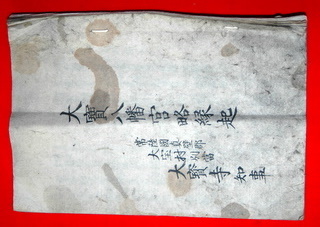 大寶八幡宮略縁起
常陸國真壁郡
大宝村別當
大寶寺知事